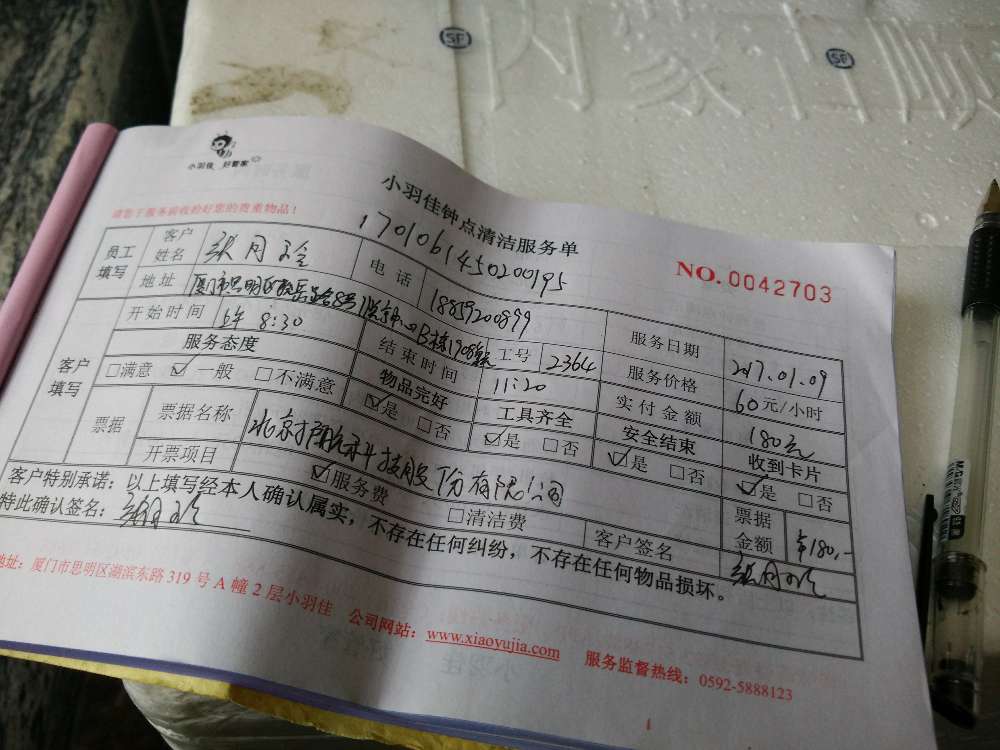 SF
SF
内蒙 顺
小羽佳 好管家
请您于服务前收拾好您的贵重物品！
小羽佳钟点清洁服务单
1701061450200195
NO.0042703
员工填写 客户姓名 张月玲 电话 18859200899 服务日期 2017.01.09
地址 厦门市思明区 8号 B栋1908 工号 2364 服务价格 60元/小时
客户填写 开始时间 上午 8:30 结束时间 11:20 实付金额 180元
服务态度 物品完好 工具齐全 安全结束 收到卡片
□满意 ☑一般 □不满意 ☑是 □否 ☑是 □否 ☑是 □否 ☑是 □否
票据 票据名称 北京 科技股份有限公司 票据金额 ¥180,-
开票项目 ☑服务费 □清洁费 客户签名 张月玲
客户特别承诺：以上填写经本人确认属实，不存在任何纠纷，不存在任何物品损坏。
特此确认签名：张月玲
地址：厦门市思明区湖滨东路 319 号 A 幢 2 层小羽佳 公司网站：www.xiaoyujia.com 服务监督热线：0592-5888123